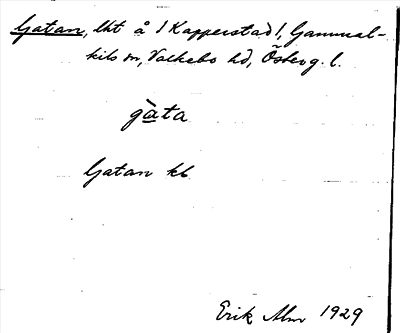 Gatan, lht å 1 Kapperstad 1, Gammal-
kils sn, Valkebo hd, Östergötl. l.
gàta
Gatan kb
Erik Alm 1929